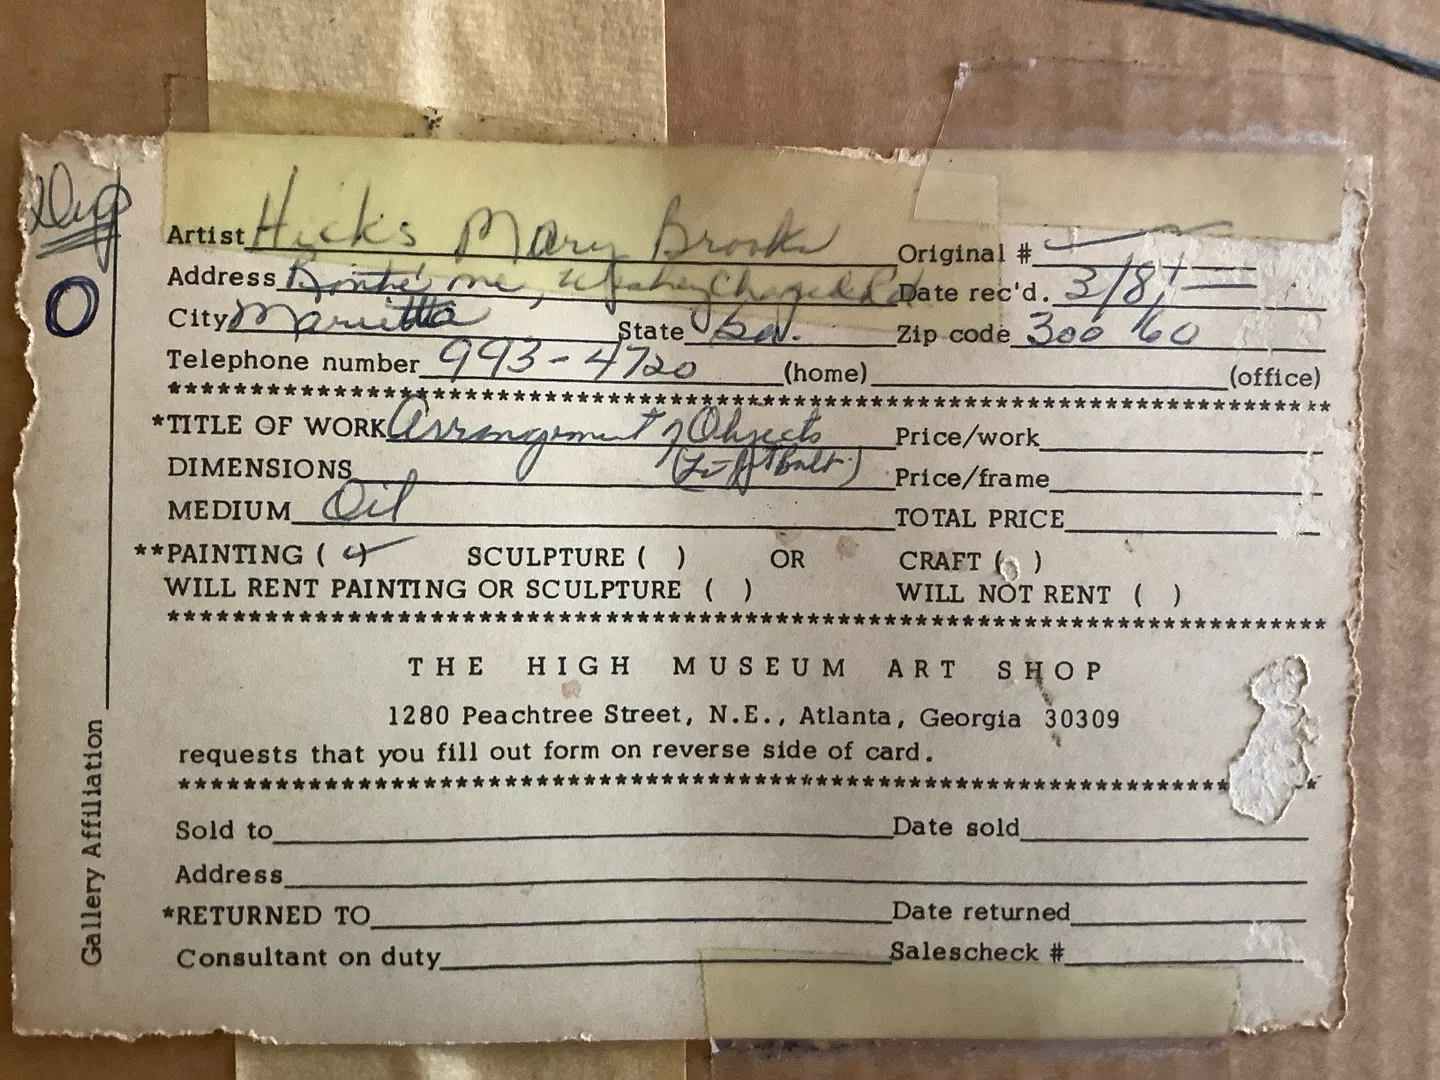 Artist Hicks Mary Brooks Original #
Address Route one, Date rec'd. 3/8/
City Marietta State Ga. Zip code 30060
Telephone number 993-4720 (home) (office)
********************************************************************************
*TITLE OF WORK Arrangement of Objects Price/work
DIMENSIONS Price/frame
MEDIUM Oil TOTAL PRICE
**PAINTING ( ✓ SCULPTURE ( ) OR CRAFT ( )
WILL RENT PAINTING OR SCULPTURE ( ) WILL NOT RENT ( )
********************************************************************************
THE HIGH MUSEUM ART SHOP
1280 Peachtree Street, N.E., Atlanta, Georgia 30309
requests that you fill out form on reverse side of card.
********************************************************************************
Sold to Date sold
Address
*RETURNED TO Date returned
Consultant on duty Salescheck #
Gallery Affiliation
O